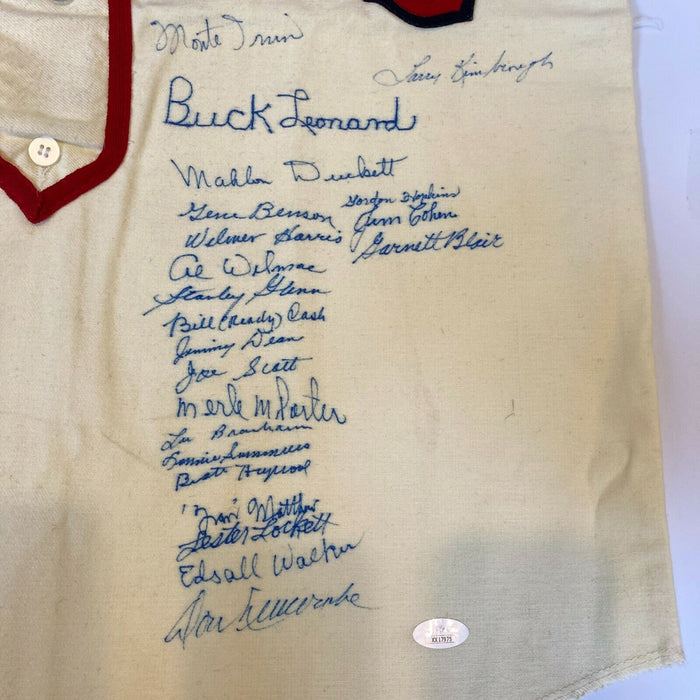 Monte Irvin
Larry Kimbrough
Buck Leonard
Mahlon Duckett
Gene Benson
Gordon Hopkins
Wilmer Harris
Jim Cohen
Garnett Blair
Al Wilmore
Stanley Glenn
Bill (Ready) Cash
Jimmy Dean
Joe Scott
Merle M Porter
Lu Branham
Lonnie Summers
Haywood
"Fran" Matthews
Lester Lockett
Edsall Walker
Don Newcombe